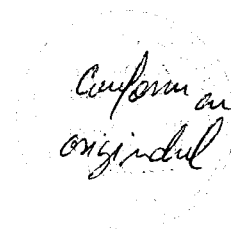 Conform cu
originalul